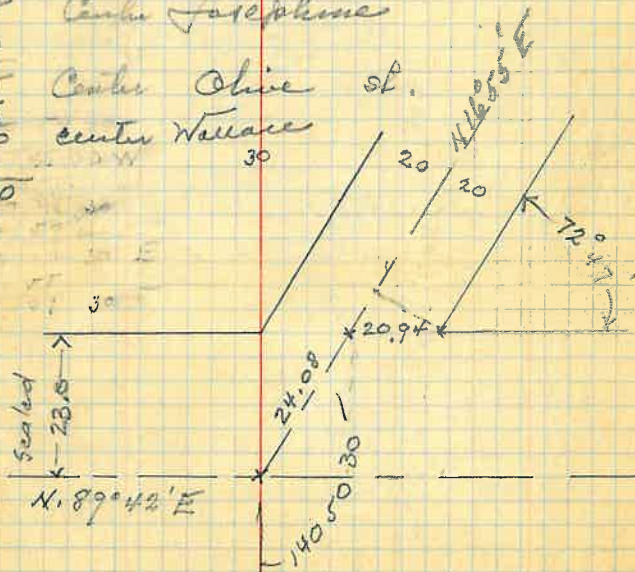 Center Josephine
Center Olive st.
center Wallace
30
20
20
N16°55'E
72°47'
30
20.94
24.08
Scaled
23.0
30
N. 89°42'E
140 50